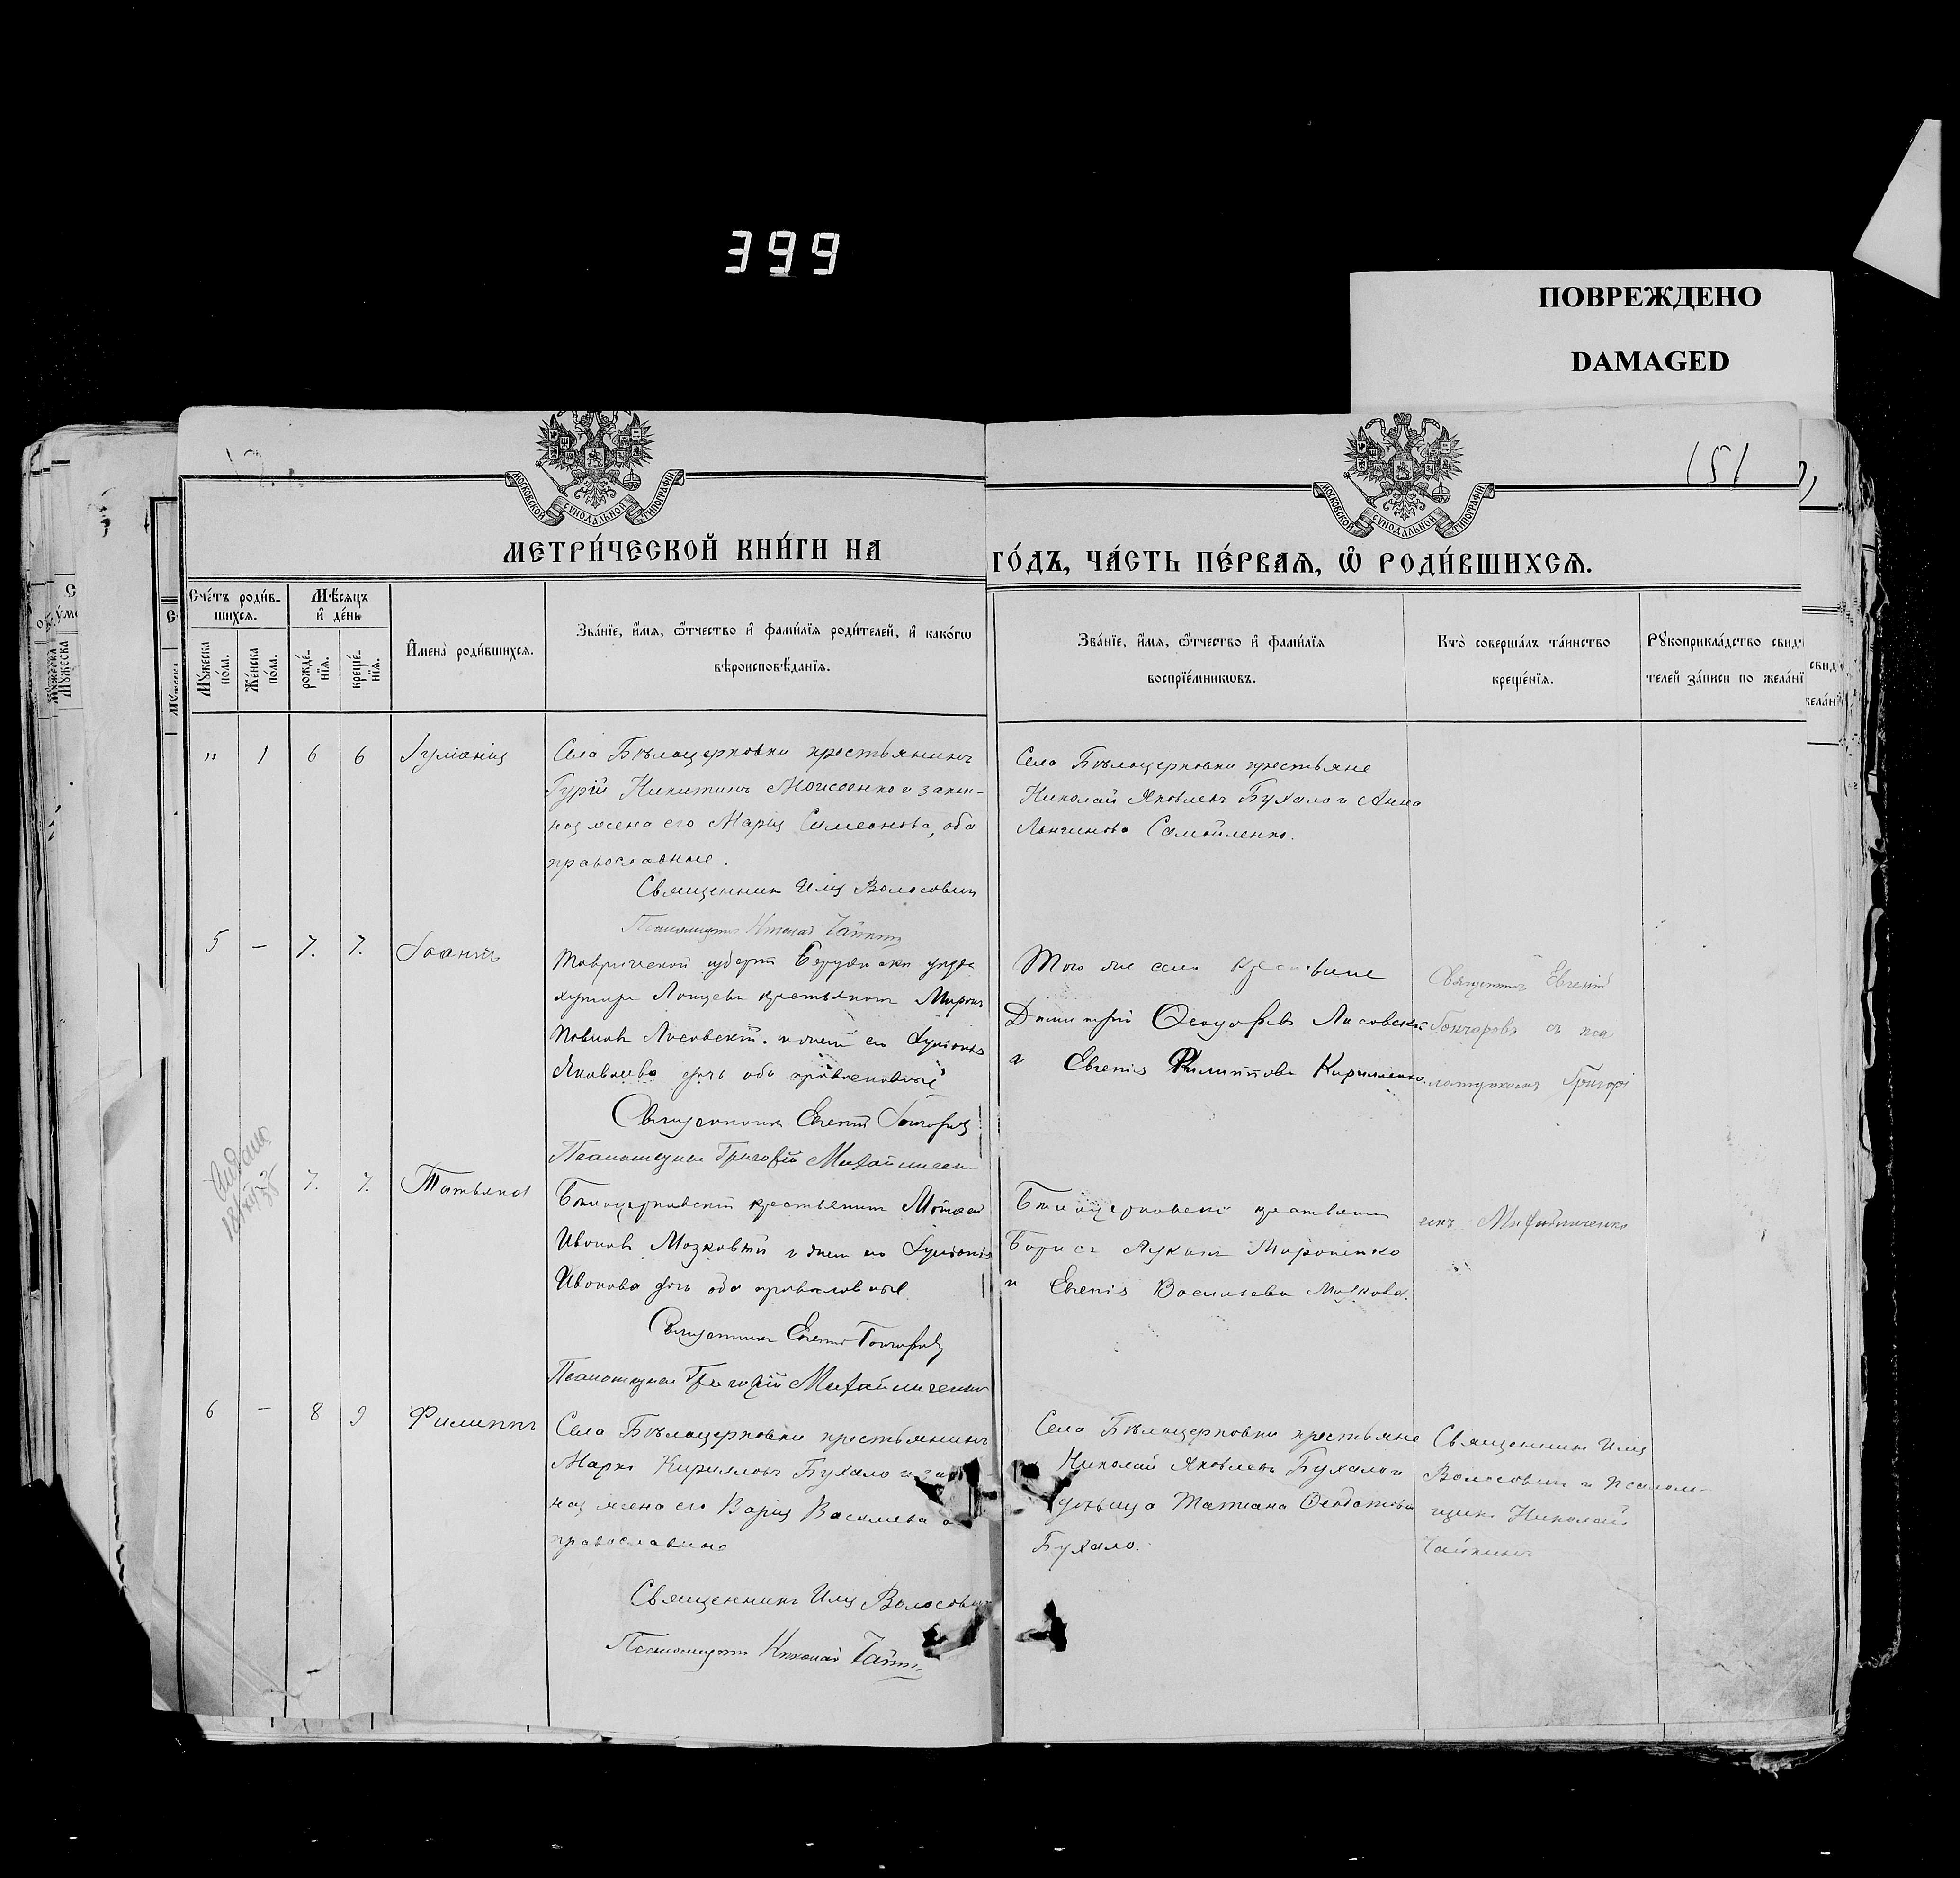 399
ПОВРЕЖДЕНО
DAMAGED
151
МОСКОВСКОЙ СѴНОДАЛЬНОЙ ТИПОГРАФІИ
МОСКОВСКОЙ СѴНОДАЛЬНОЙ ТИПОГРАФІИ
МЕТРИ́ЧЕСКОЙ КНИ́ГИ НА
ГО́ДЪ, ЧА́СТЬ ПЕ́РВАѦ, Ѡ҆ РОДИ́ВШИХСѦ.
Сче́тъ роди́в-
шихсѧ.
Мꙋ́жеска
по́ла.
Же́нска
по́ла.
Мѣ́сѧцъ
и҆ де́нь
рожде́-
нїѧ.
креще́-
нїѧ.
И҆мена̀ роди́вшихсѧ.
Зва́нїе, и҆́мѧ, ѻ҆́тчество и҆ фами́лїѧ роди́телей, и҆ како́гѡ
вѣроисповѣ́данїѧ.
Зва́нїе, и҆́мѧ, ѻ҆́тчество и҆ фами́лїѧ
воспрїе́мникѡвъ.
Кто̀ соверша́лъ та́инство
креще́нїѧ.
Рꙋкоприкла́дство свид
телей за́писи по жела́нї
" 1 6 6 Іуліанія
Села Бѣлоцерковки крестьянинъ
Гурій Никитинъ Моисеенко и закон-
ная жена его Марія Симеонова, оба
православные.
Священникъ Илія Волосовичъ
Псаломщикъ Николай Чайкинъ
Села Бѣлоцерковки крестьяне
Николай Яковлевъ Бухало и Анна
Лонгинова Самойленко.
5 - 7. 7. Іоаннъ
Таврической губерн Бердянска уезда
хутора крестьянинъ Миронъ
Лисовскій и жена его
Яковлева оба православные
Священникъ Евгеній Гончаровъ
Псаломщикъ Григорій Михайличенко
Того же села крестьяне
Димитрій Ѳеодоровъ Лисовскій
и Евгенія Филиппова Кириленко.
Священникъ Евгеній
Гончаровъ съ пса
ломщикомъ Григорі
емъ Михайличенко
Выдано
7. 7. Татьяна
Бѣлоцерковскій крестьянинъ Моисей
Ивановъ Мозковый и жена его
Иванова оба православные
Священникъ Евгеній Гончаровъ
Псаломщикъ Григорій Михайличенко
Бѣлоцерковскій крестьянинъ
Борисъ Лукинъ Мироненко
и Евгенія Васильева Мозкова.
6 - 8 9 Филиппъ
Села Бѣлоцерковки крестьянинъ
Марко Кирилловъ Бухало и за
ная жена его Васильева
православные
Священникъ Илія Волосович
Псаломщикъ Николай Чайкинъ
Села Бѣлоцерковки крестьяне
Николай Яковлевъ Бухало и
дѣвица Татіана Ѳеодотова
Бухало.
Священникъ Илія
Волосовичъ и псалом-
щикъ Николай
Чайкинъ